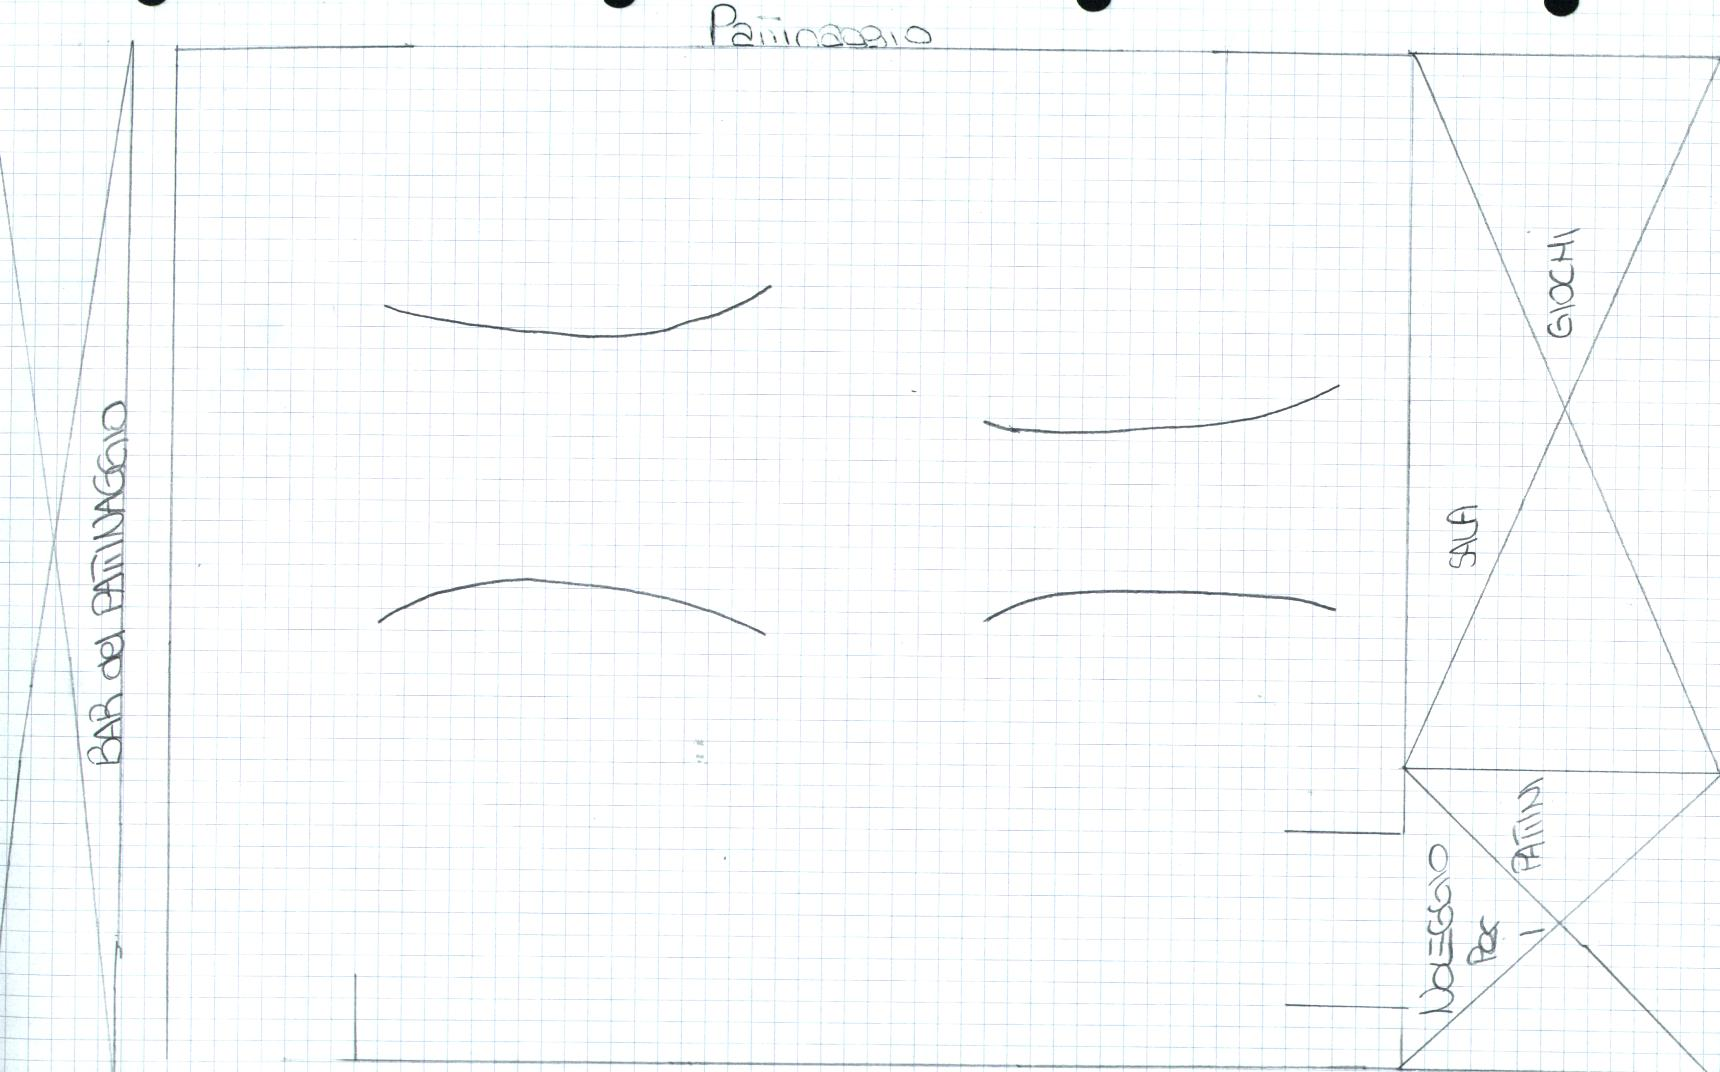 Pattinaggio
BAR del PATTINAGGIO
SALA GIOCHI
NOLEGGIO
PER I
PATTINI